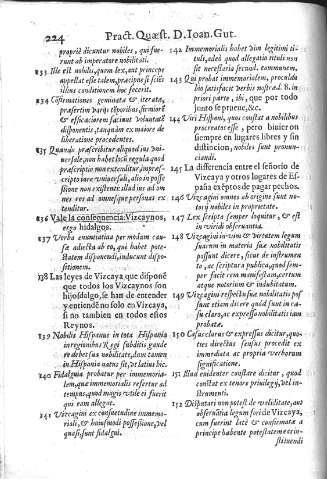 224
Pract. Quæst. D. Ioan. Gut.
propriè dicuntur nobiles, qui fue-
runt ab imperatore nobilitati.
133 Ille est nobilis, quem lex, aut princeps
appellat esse talem, præcipuè si scit
illius conditionem hoc fecerit.
134 Confirmationes geminatæ & iteratæ,
præsertim varijs temporibus, firmiorē
& efficaciorem faciunt voluntatē
disponentis, tanquàm ex maiore de
liberatione procedentes.
135 Quando præscribitur aliquod ius vni-
uersale, non habet locū regula quod
præscriptio non extenditur, impræs-
criptorum vniuersali, alio in posse
ssione non existente illud ius ad om
nes res ad omnesque personas ex
tenditur.
136 Vale la consequencia: Vizcaynos,
ergo hidalgos.
137 Verba enuntiatiua per modum cau-
sæ adiecta ab eo, qui habet pote-
statem disponendi, inducunt dispo-
sitionem.
138 Las leyes de Vizcaya que disponē
que todos los Vizcaynos son
hijosdalgo, se han de entender
y entienden no solo en Vizcaya,
si no tambien en todos estos
Reynos.
139 Nobilis Hispanus in tota Hispania
in regionibus Regi subditis gaude
re debet sua nobilitate, dum tamen
in Hispania natus sit, & latius hic.
140 Fidalguia probatur per immemoria-
lem, quæ immemorialis refertur ad
tempus, quod magis vtile ei fuerit
qui eam allegat.
141 Vizcayni ex consuetudine immemo-
riali, & huiusmodi possessione, vel
quasi, sunt fidalgi.
142 Immemorialis habet vim legitimi ti-
tuli, dedè quod allegatio tituli non
sit necessaria secundum communem.
143 Qui probat immemorialem, proculdu
bio satisfacit verbis nostræ d. l. 8. in
priori parte, ibi, que por todo
junto se prueue, &c.
144 Viri Hispani, quos constat à nobilibus
procreatos esse, pero biuieron
siempre en lugares libres y sin
distincion, nobiles sunt pronun-
ciandi.
145 La differencia entre el señorio de
Vizcaya y otros lugares de Es-
paña exēptos de pagar pechos.
146 Vizcayni omnes ab origine sunt no-
torij nobiles in proprietate.
147 Lex scripta semper loquitur, & est
in viridi obseruantia.
148 Vizcayni in vim & virtutem legum
suarum in materia suæ nobilitatis
possunt dicere, sicut de instrumen
to, ac scriptura publica, quod sem-
per facit rem manifestam, certam
atque notoriam & indubitatam.
149 Vizcayni respectu suæ nobilitatis pos
sunt etiam dicere quòd sunt in ca-
su claro, & expresso nobilitatis iam
probatæ.
150 Casus clarus & expressus dicitur, quo-
ties directus sensus procedit ex
immediata ac propria verborum
significatione.
151 Illud euidenter constare dicitur, quod
constat ex tenore priuilegij, vel in-
strumenti.
152 Disputari non potest de validitate, aut
obseruātia legum fori de Vizcaya,
cum fuerint latæ & confirmatæ a
principe habente potestatem eas in-
stituendi